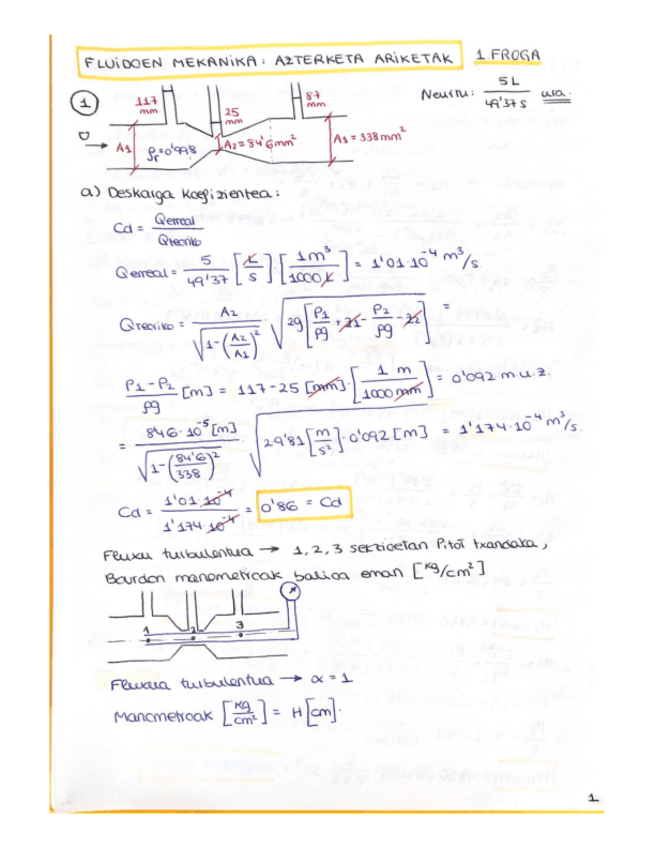 FLUIDOEN MEKANIKA: AZTERKETA ARIKETAK 1.FROGA
Neurtu: 5L / 49'37 s ura.
1
117 mm
25 mm
87 mm
υ
A1
ρr=0'998
A2=84'6mm²
A1=338mm²
a) Deskarga koefizientea:
Cd = Qerreal / Qteoriko
Qerreal = 5 / 49'37 [L/s] [1m³ / 1000 L] = 1'01·10⁻⁴ m³/s
Qteoriko = A2 / √(1-(A2/A1)²) √(2g[P1/ρg + z1 - P2/ρg - z2]) =
P1-P2 / ρg [m] = 117-25 [mm]·[1 m / 1000 mm] = 0'092 m.u.z.
= 8'46·10⁻⁵[m] / √(1-(84'6/338)²) √(2·9'81[m/s²]·0'092[m]) = 1'174·10⁻⁴ m³/s.
Cd = 1'01·10⁻⁴ / 1'174·10⁻⁴ = 0'86 = Cd
Fluxu turbulentua → 1, 2, 3 sekzioetan Pitot txandaka,
Bourdon manometroak balioa eman [kg/cm²]
1 2 3
Fluxua turbulentua → α = 1
Manometroak [kg/cm²] = H[cm].
1